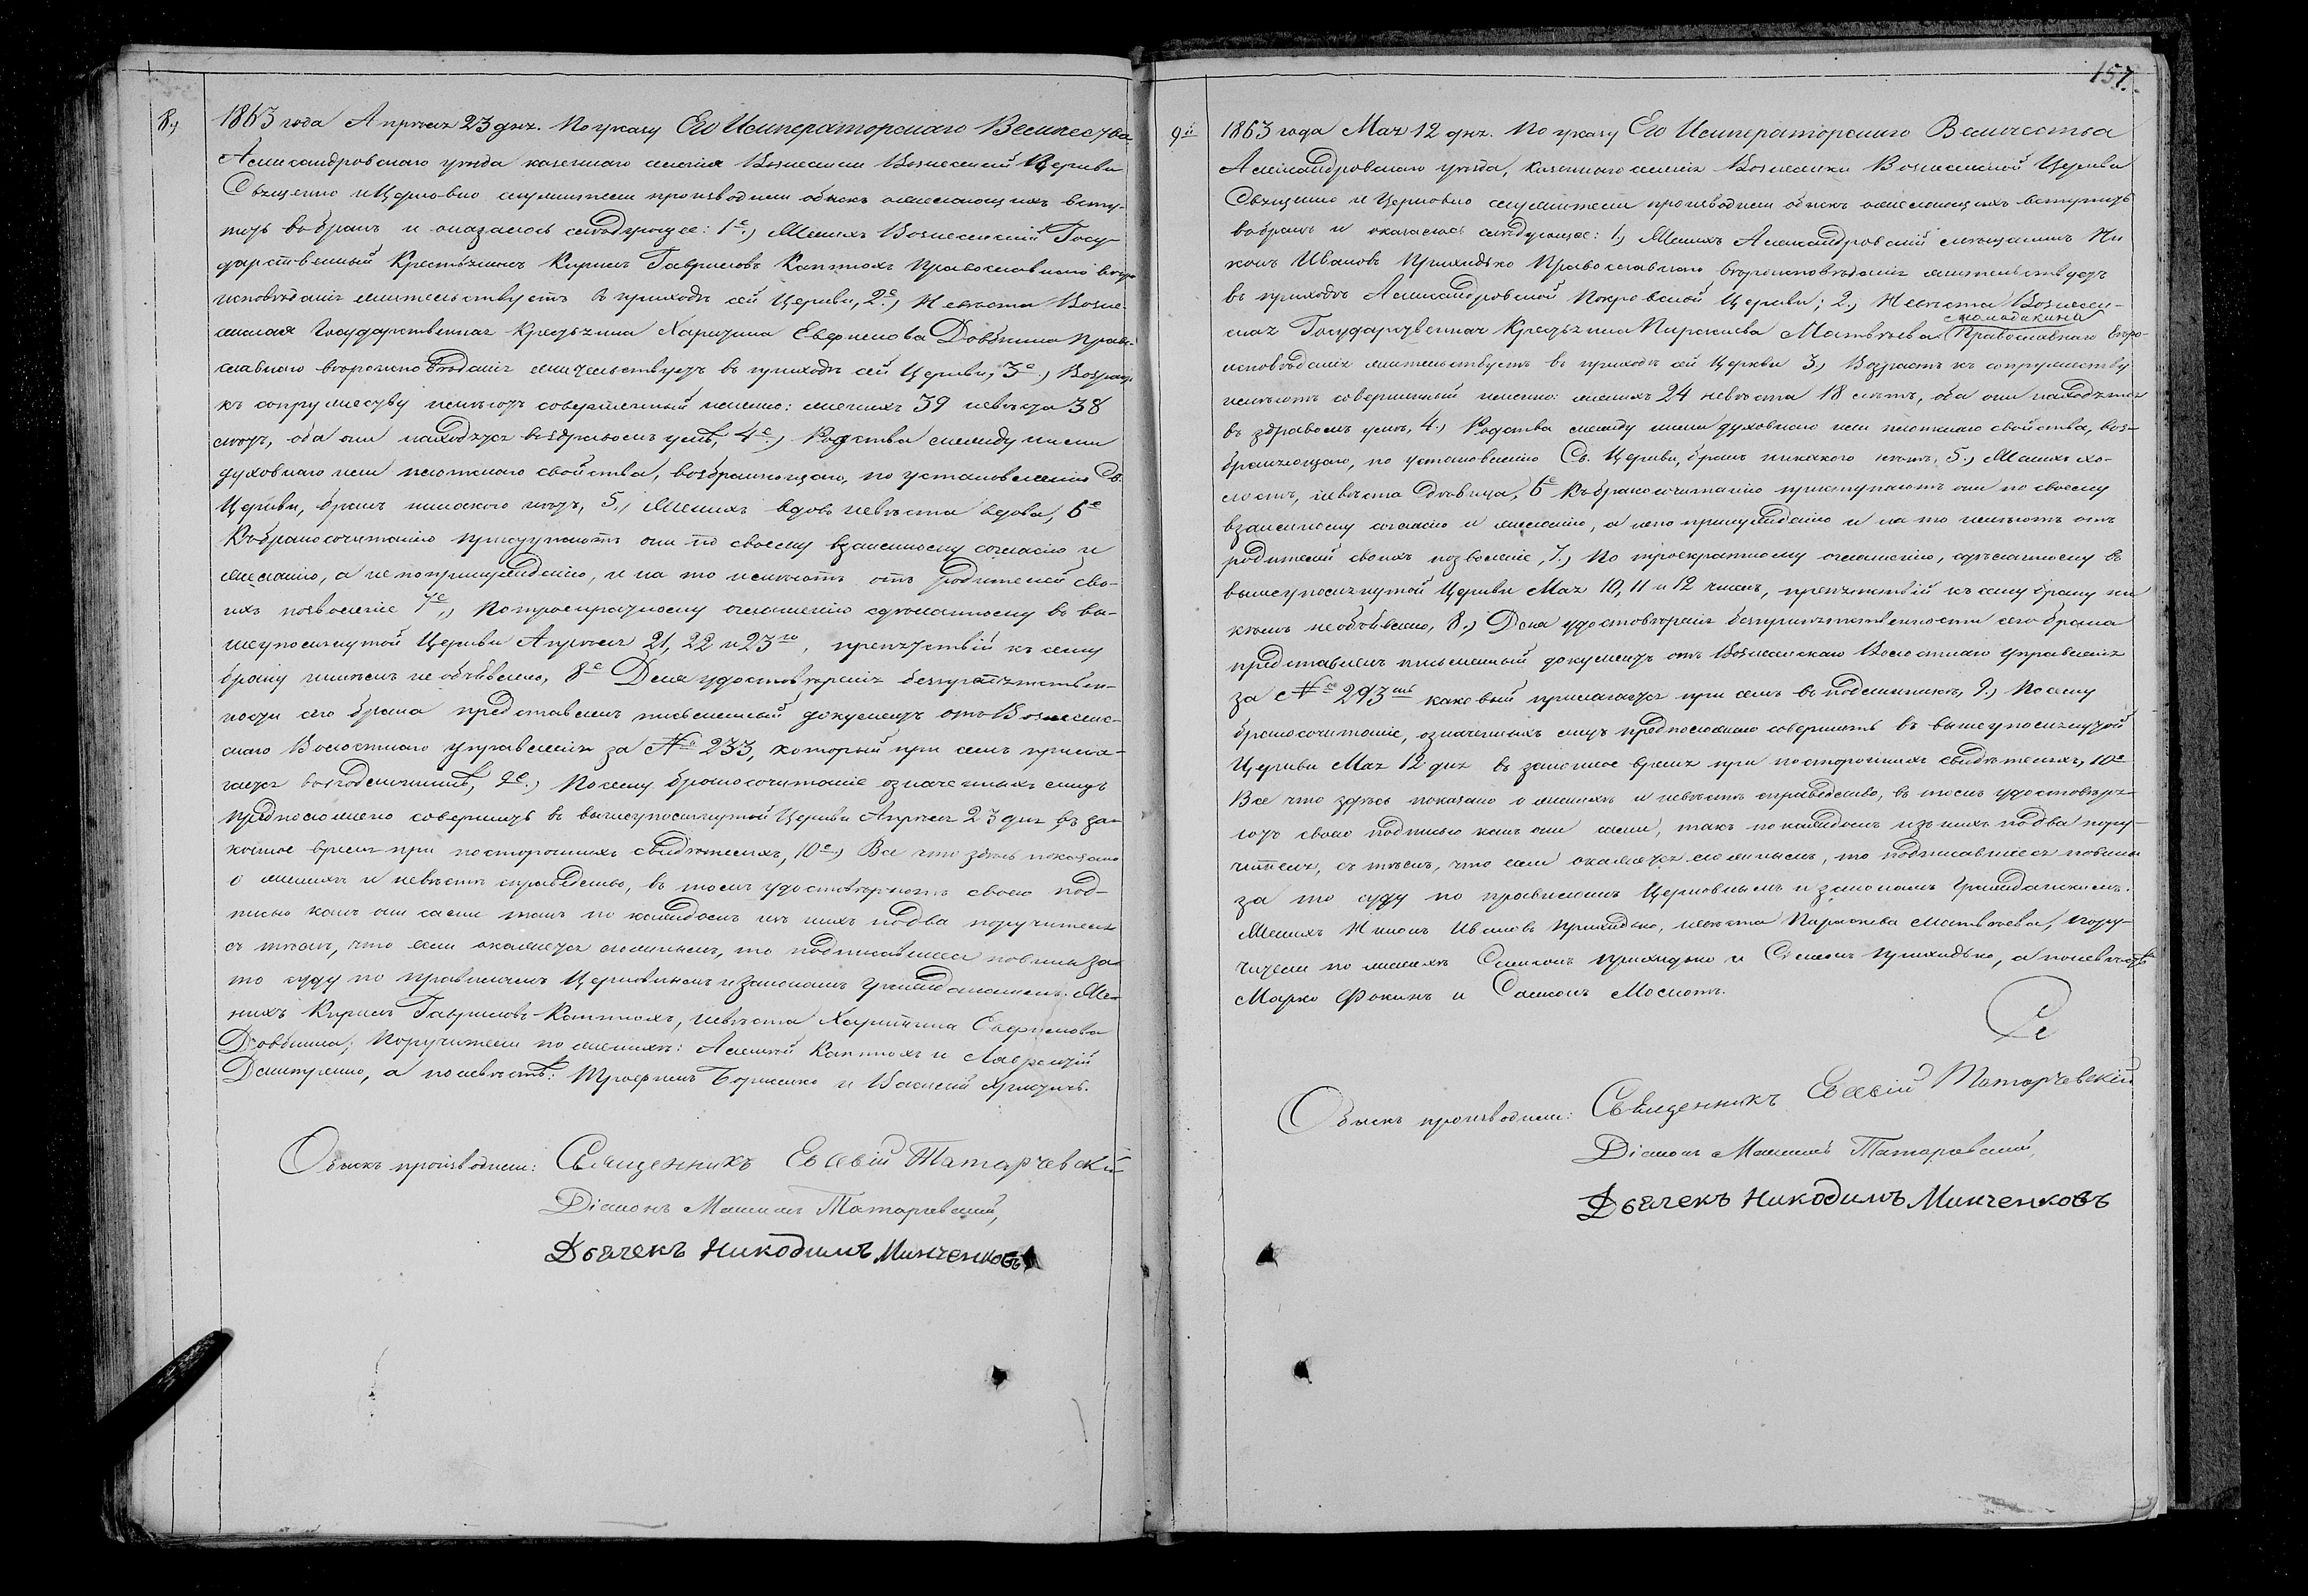 8.,
1863 года Апрѣля 23 дня. По указу Его Императорскаго Величества,
Александровскаго уѣзда казеннаго селенія Вознесенки Вознесенской Церкви
Священно и Церковно служители производили обыскъ о желающихъ всту-
пить въ бракъ и оказалось слѣдующее: 1е.) Женихъ Вознесенскій Госу-
дарственный Крестьянинъ Кирилъ Гавриловъ Каптюхъ Православнаго вѣро
исповѣданія жительствуетъ въ приходѣ сей Церкви, 2е.) Невѣста Возне-
сенская Государственная Крестьянка Харитина Евфимова Довбнина Право-
славнаго вѣроисповѣданія жительствуетъ въ приходѣ сей Церкви, 3е.) Возрастъ
къ сопружеству имѣютъ совершенный именно: женихъ 39 невѣста 38
лѣтъ, оба они находятся въ здравомъ умѣ, 4е.) Родства между ними
духовнаго или плотскаго свойства, возбраняющаго, по установленію Св.
Церкви, бракъ никакого нѣтъ, 5., Женихъ вдовъ невѣста вдова, 6е
Къ бракосочитанію приступаютъ они по своему взаимному согласію и
желанію, а не по принужденію, и на то имѣютъ отъ родителей сво-
ихъ позволеніе 7е.,) По троекратному оглашенію сдѣланному въ вы-
шеупомянутой Церкви Апрѣля 21, 22 и 23го, препятствій къ сему
браку никѣмъ не объявлено, 8е Для удостовѣренія безпрепятствен-
ности сего брака представленъ письменный документъ отъ Вознесен-
скаго Волостнаго Управленія за № 233, который при семъ прила-
гается въ подлинникѣ, 9е.) По сему бракосочитаніе означенныхъ лицъ
предположено совершить въ вышеупомянутой Церкви Апрѣля 23 дня въ за-
конное время при постороннихъ свидѣтеляхъ, 10е.) Все что здѣсь показано
о женихѣ и невѣстѣ справедливо, въ томъ удостовѣряютъ своею под-
писью какъ они сами такъ по каждомъ изъ нихъ по два поручителя
съ тѣмъ, что если окажется ложнымъ, то подписавшіеся повины за
то суду по правиламъ Церковнымъ и законамъ гражданскимъ. Же-
нихъ Кирилъ Гавриловъ Каптюхъ, невѣста Харитина Евфимова
Довбнина; Поручители по женихѣ: Алексѣй Каптюхъ и Лаврентій
Дмитренко, а по невѣстѣ: Трофимъ Борисенко и Василій
Обыскъ производили: Священникъ Евсевій Татарчевскій
Діаконъ Максимъ Татаревскій,
Дьячекъ Никодимъ Минченковъ
157.
9й
1863 года Мая 12 дня. По указу Его Императорскаго Величества
Александровскаго уѣзда, казеннаго селенія Вознесенки Вознесенской Церкви
Священно и Церковно служители производили обыскъ о желающихъ вступить
въ бракъ и оказалось слѣдующее: 1.) Женихъ Александровскій мѣщанинъ Ни
конъ Ивановъ Приходько Православнаго вѣроисповѣданія жительствуетъ
въ приходѣ Александровской Покровской Церкви; 2.) Невѣста Вознесен-
ская Государственная Крестьянка Параскева Матвѣева Православнаго вѣро-
исповѣданія жительствуетъ въ приходѣ сей Церкви 3.) Возрастъ къ сопружеству
имѣютъ совершенный именно: женихъ 24 невѣста 18 лѣтъ, оба они находятся
въ здравомъ умѣ, 4.) Родства между ними духовнаго или плотскаго свойства, воз-
браняющаго, по установленію Св. Церкви, бракъ никакого нѣтъ, 5.) Женихъ хо-
лостъ, невѣста дѣвица, 6е Къ бракосочитанію приступаютъ они по своему
взаимному согласію и желанію, а не по принужденію и на то имѣютъ отъ
родителей своихъ позволеніе, 7.) По троекратному оглашенію, сдѣланному въ
вышеупомянутой Церкви Мая 10, 11 и 12 чиселъ, препятствій къ сему браку ни
кѣмъ не объявлено, 8.) Для удостовѣренія безпрепятственности сего брака
представленъ письменный документъ отъ Вознесенскаго Волостнаго Управленія
за № 293 каковый прилагается при семъ въ подлинникѣ, 9.) По сему
бракосочитаніе, означенныхъ лицъ предположено совершить въ вышеупомянутой
Церкви Мая 12 дня въ законное время при постороннихъ свидѣтеляхъ, 10е
Все что здѣсь показано о женихѣ и невѣстѣ справедливо, въ томъ удостовѣря-
ютъ своею подписью какъ они сами, такъ по каждомъ изъ нихъ по два пору-
чителя, съ тѣмъ, что если окажется ложнымъ, то подписавшіеся повины
за то суду по правиламъ Церковнымъ и законамъ гражданскимъ.
Женихъ Никонъ Ивановъ Приходько, невѣста Параскева Матвѣева, пору-
чители по женихѣ Самсонъ Приходько и Симонъ Приходько, а по невѣстѣ
Марко Фокинъ и Самсонъ
Обыскъ производили: Священникъ Евсевій Татарчевскій
Діаконъ Максимъ Татаревскій,
Дьячекъ Никодимъ Минченковъ